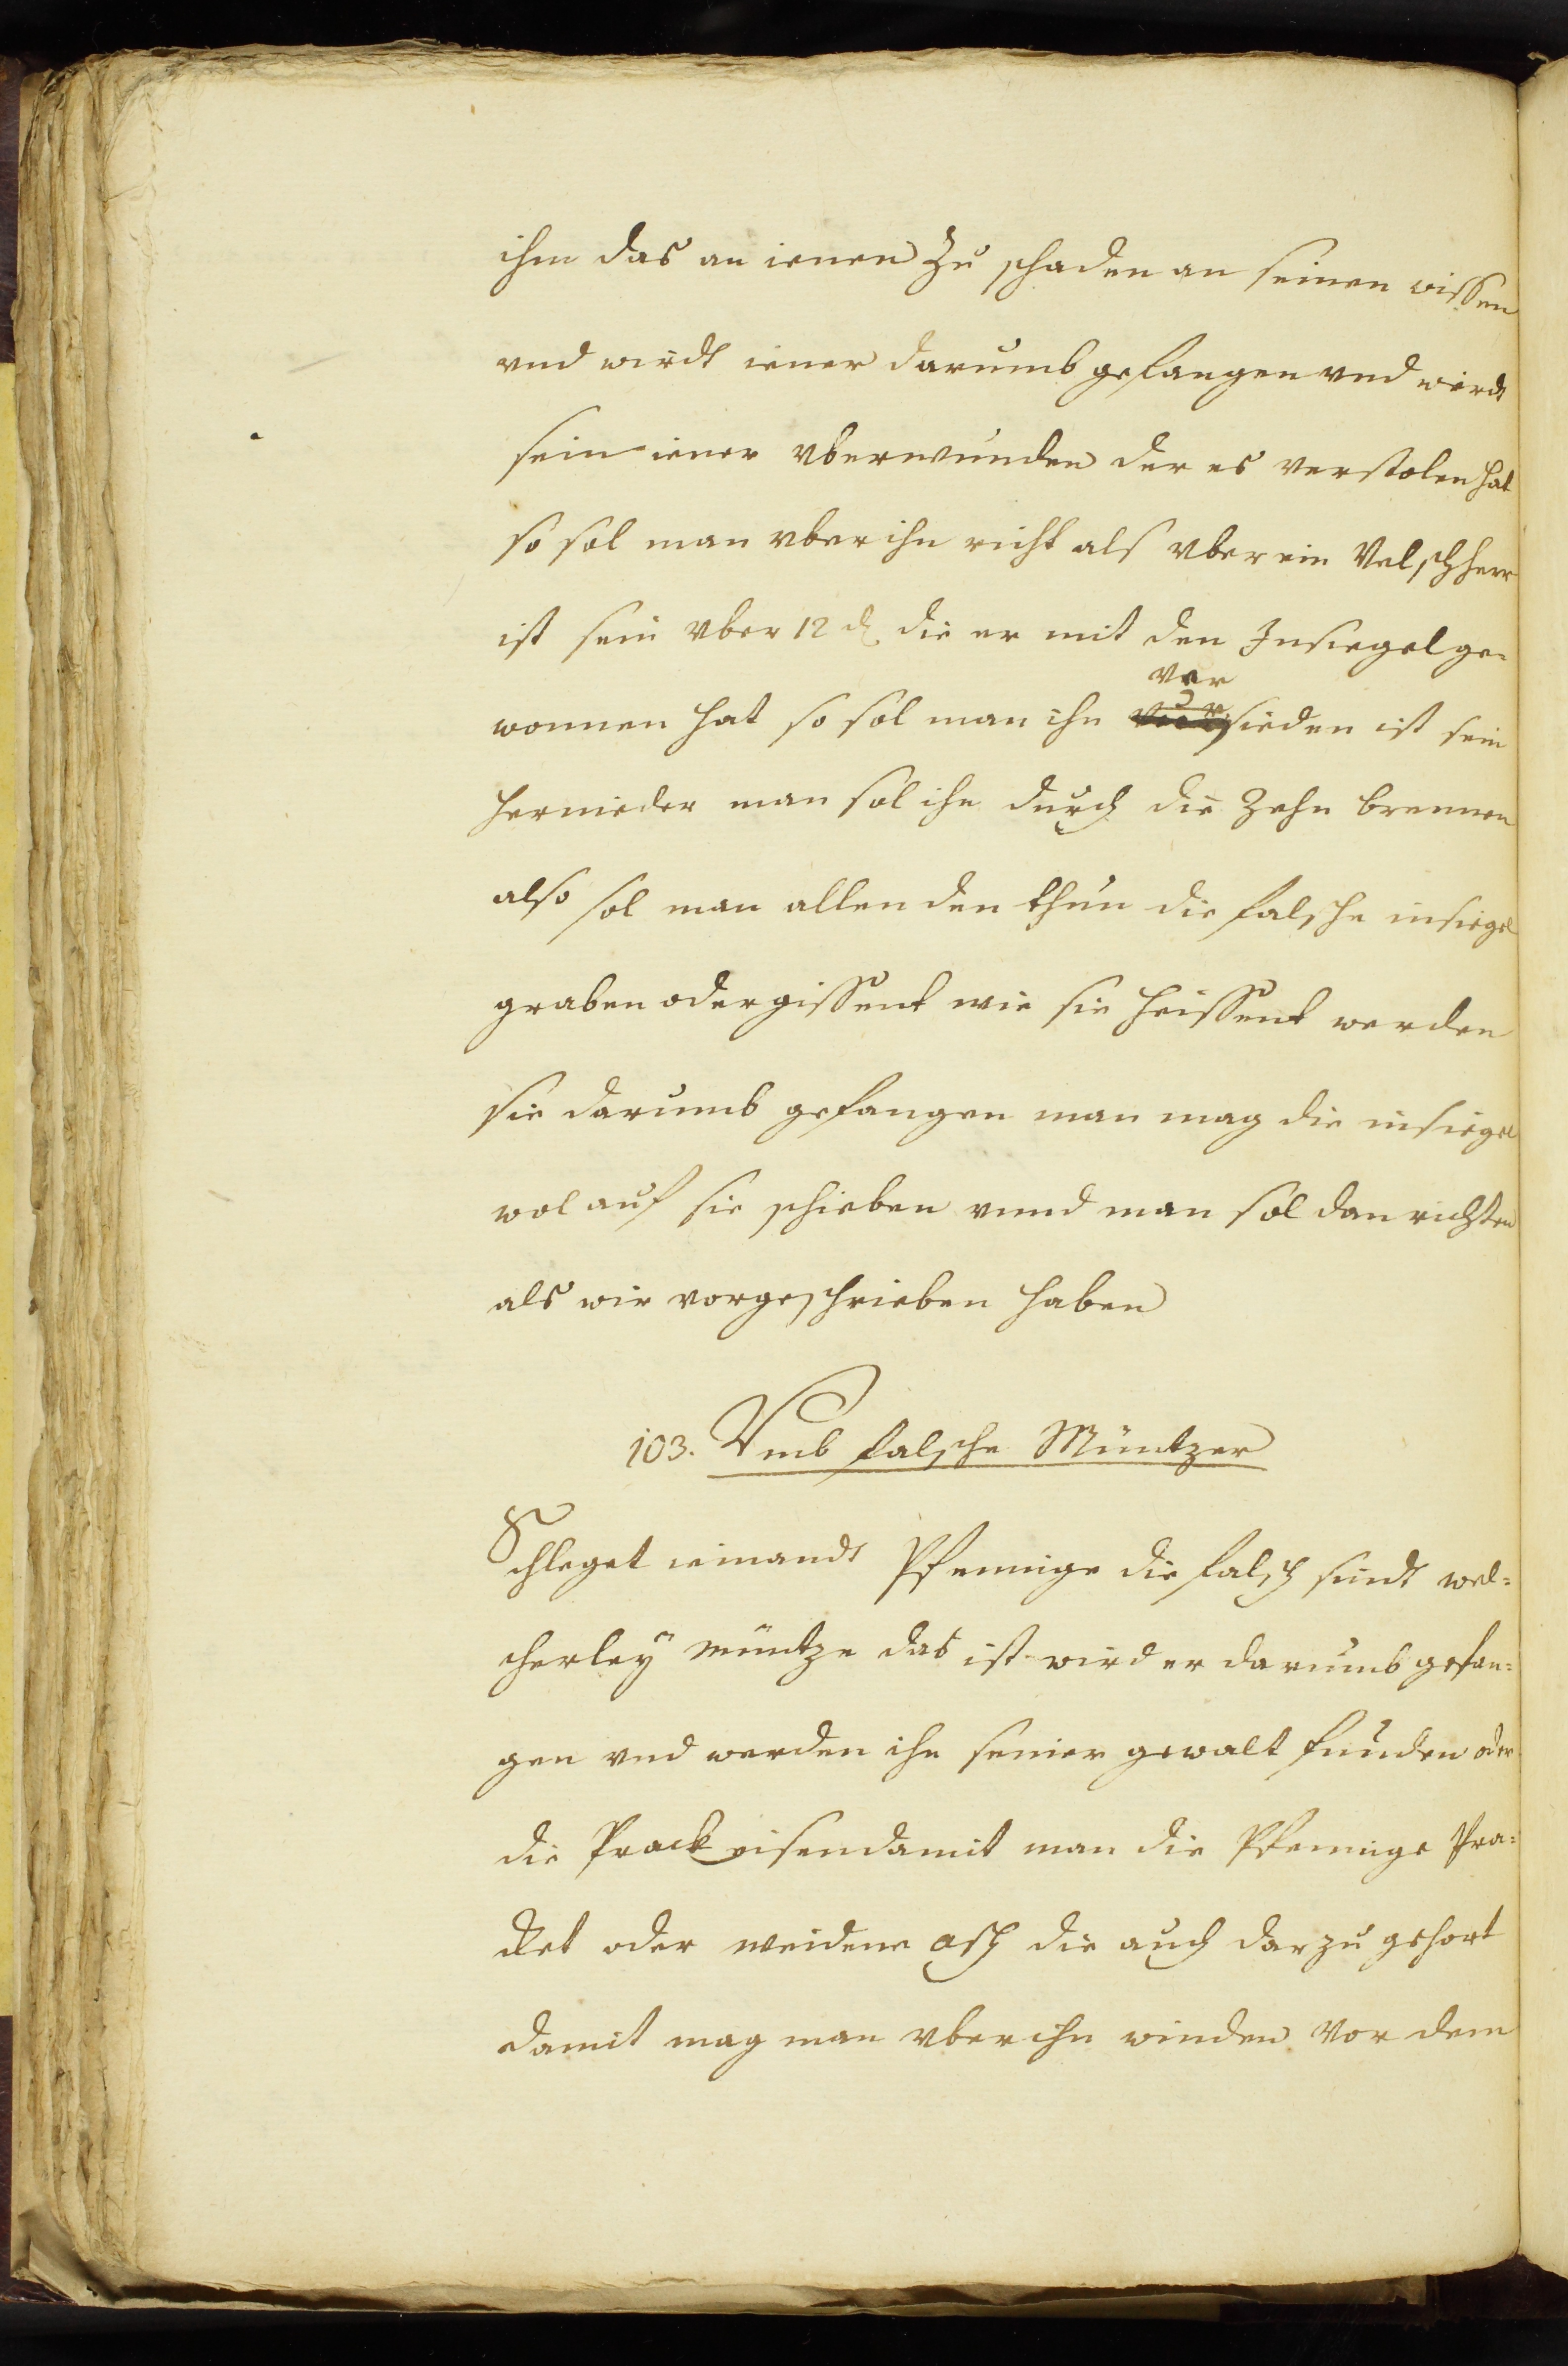 ihm das an ienen zu schaden an seinen wissen
vnd wirdt iener darumb gefangen vnd wirdt
sein iener vberwunden der es verstolen hat
so sol man vber ihn richt als vber ein Velschherr
ist sein vber 12 d die er mit den Insiegel ge=
ver
wonnen hat so sol man ihn sieden ist sein
hernieder man sol ihn durch die Zehn brennen
also sol man allen den thun die falsche insiegel
graben oder gissent wie sie heissent werden
sie darumb gefangen man mag die insiegel
wol auf sie schieben vnnd man sol dan richten
als wir vorgeschrieben haben
103. Vmb falsche Müntzer
Schleget iemandt Pfennige die falsch sindt wel=
cherley müntze das ist wird er darumb gefan=
gen vnd werden ihn seiner gewalt funden oder
die Prack eisen damit man die Pfennige Pra=
cket oder weidene asch die auch darzu gehort
damit mag man vber ihn winden vor dem